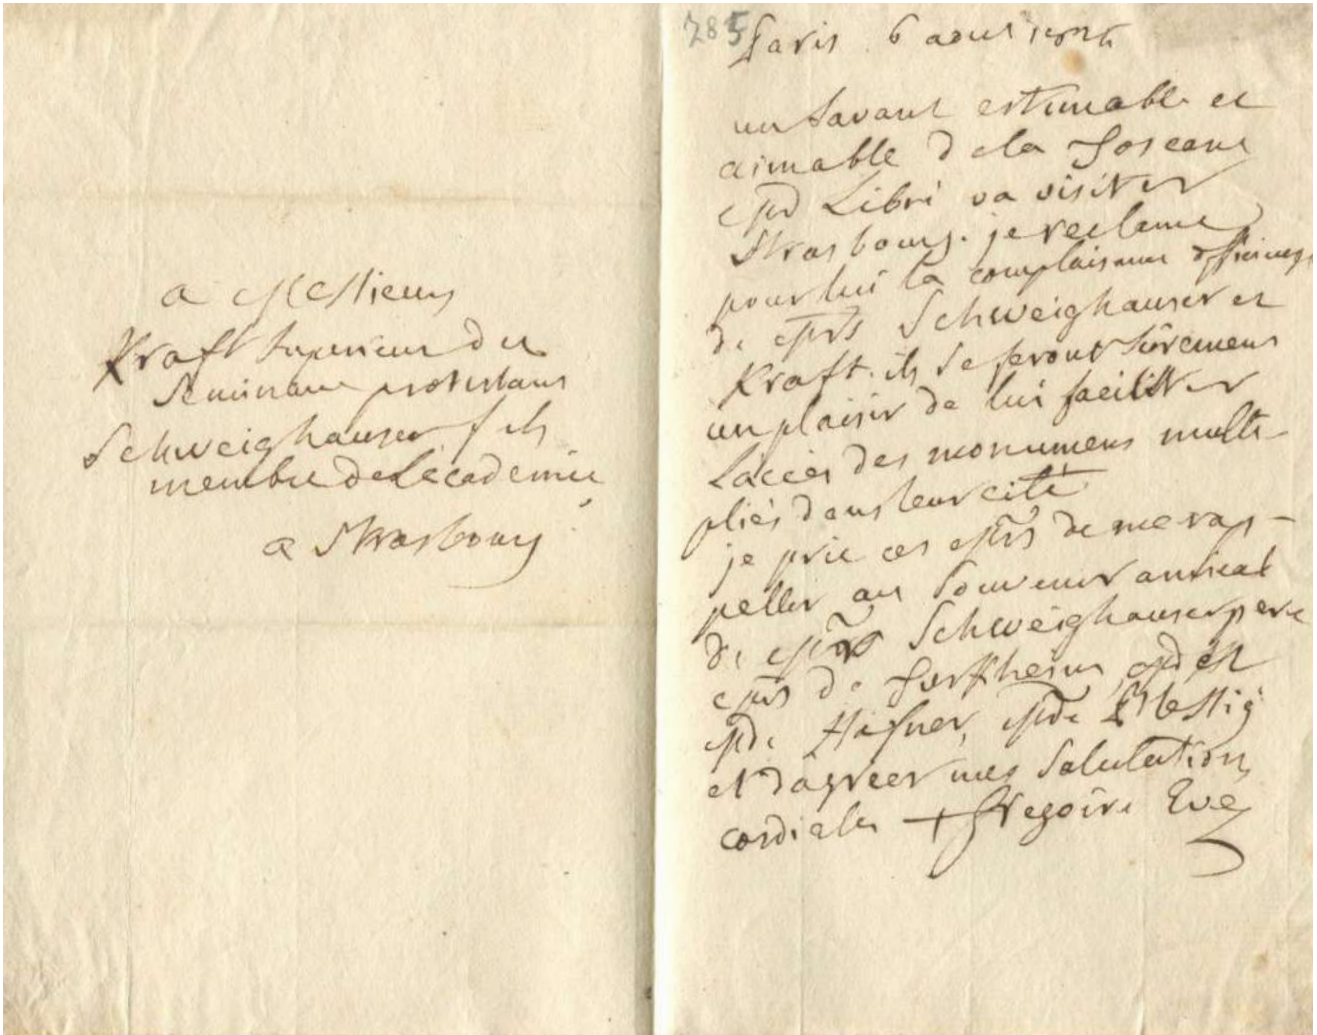 a Messieurs
Kraft Superieur du
Seminaire protestans
Schweighauser fils
membre de l'académie
a Strasbourg
285
Paris 6 aout
un Savant estimable et
aimable de la Toscane
Mr Libri va visiter
Strasbourg. je reclame
pour lui la complaisance officieuse
de Mrs Schweighauser et
Kraft. ils se feront sûrement
un plaisir de lui faciliter
l'accès des monumens multi-
pliés dans leur cité
je prie ces Mrs de me rap-
peller au Souvenir amical
de Mr Schweighauser pere
de
Hafner,
et d'agréer mes Salutations
cordiales + Gregoire Eveq